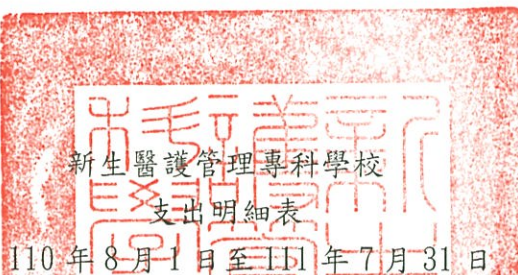 新生醫護管理專科學校
支出明細表
110 年 8 月 1 日至 111 年 7 月 31 日